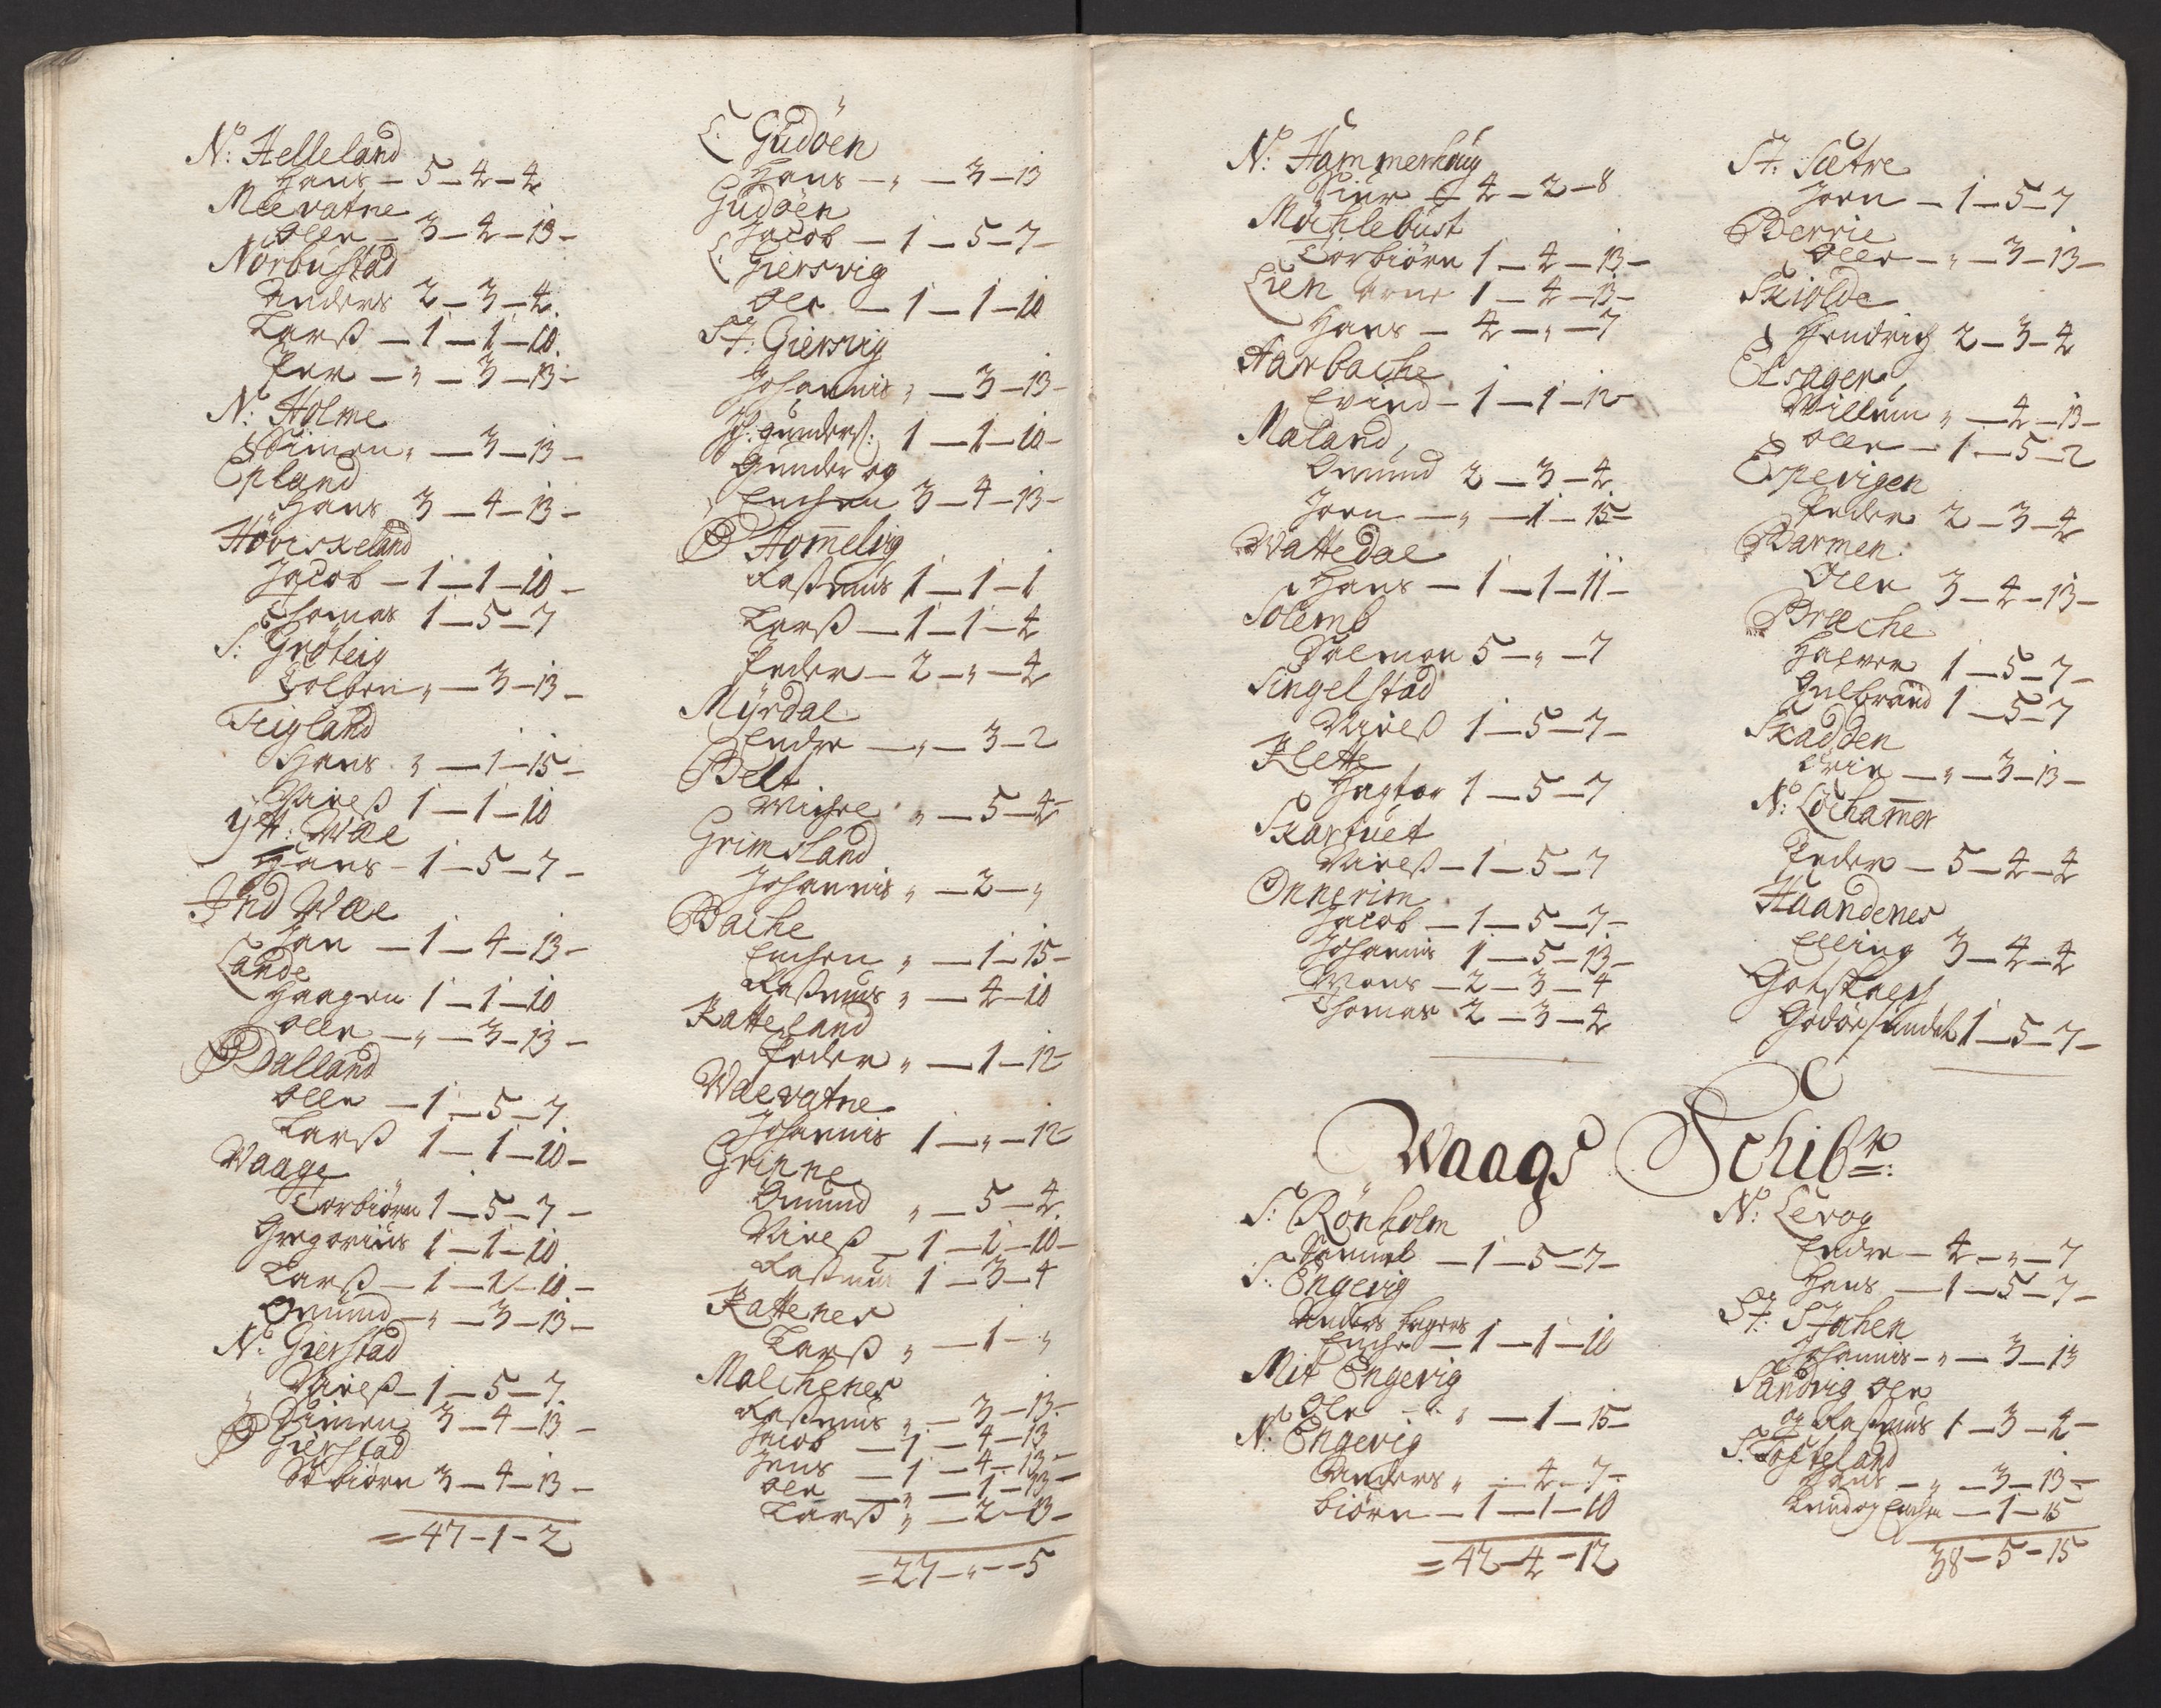 N: Helleland
Hans - 5 - 4 - 4
Mevatne
Olle - 3 - 4 - 13 -
Norbustad
Anders 2 - 3 - 4.
Larß - 1 - 1 - 10.
Per - „ - 3 - 13 -
N: Holme
Simen „ - 3 - 13 -
Epland
Hans 3 - 4 - 13 -
Höviskeland
Jacob - 1 - 1 - 10 -
Thomas 1 - 5 - 7
S: Gröteig
Tolben „ - 3 - 13 -
Teigland
Hans „ - 1 - 15 -
Nielß 1 - 1 - 10
Ytt: Wae
Hans - 1 - 5 - 7 -
Ind Wae
Jan - 1 - 4 - 13 -
Lande
Haagen 1 - 1 - 10
Olle - „ - 3 - 13 -
Dalland
Olle - 1 - 5 - 7
Larß 1 - 1 - 10 -
Waage
Torbiörn 1 - 5 - 7 -
Gregorius 1 - 1 - 10
Larß - 1 - 1 - 10 -
Omund - „ - 3 - 13 -
N: Gierstad
Nielß - 1 - 5 - 7
Simen 3 - 4 - 13 -
Gierstad
Torbiörn 3 - 4 - 13 -
= 47 - 1 - 2
L: Gudöen
Hans - „ - 3 - 13
Gudöen
Jacob - 1 - 5 - 7 -
L: Giersvig
Ole - 1 - 1 - 10
St: Giersvig
Johannis „ - 3 - 13 -
Joh: Gunderß: 1 - 1 - 10 -
Gunder og
Enchen 3 - 4 - 13 -
Homelvig
Raßmus 1 - 1 - 1
Larß - 1 - 1 - 4
Peder - 2 - „ - 4
Myrdal
Endre - „ - 3 - 2
Belt
Michel „ - 5 - 4 -
Grimsland
Johannis „ - 2 - „
Bache
Enchen „ - 1 - 15 -
Raßmus „ - 4 - 10
Katteland
Peder „ - 1 - 12 -
Waevatne
Johannis 1 - „ - 12 -
Grinne
Omund „ - 5 - 4.
Nielß - 1 - 1 - 10 -
Raßmus 1 - 3 - 4
Kattenes
Larß „ - 1 - „
Malchenes
Raßmus „ - 3 - 13 -
Jacob - 1 - 4 - 13
Jens - 1 - 4 - 13 -
Ole - „ - 1 - 13 -
Larß „ - 2 - 13 -
= 27 - „ - 5
N: Hammerhaug
Siur - 4 - 2 - 8
Möchlebust
Torbiörn 1 - 4 - 13 -
Lien Arne 1 - 4 - 13 -
Hans - 4 - „ - 7
Aarbache
Evind - 1 - 1 - 12 -
Maland
Omund 2 - 3 - 4
Joen - „ - 1 - 15 -
Wattedal
Hans - 1 - 1 - 11 -
Solemb
Salmon 5 - „ - 7
Singelstad
Nielß 1 - 5 - 7 -
Klette
Hagtor 1 - 5 - 7
Skartuet
Nielß - 1 - 5 - 7
Onnerim
Jacob - 1 - 5 - 7 -
Johannis 1 - 5 - 13 -
Mons - 2 - 3 - 4
Thomas 2 - 3 - 4
St: Sætre
Joen - 1 - 5 - 7
Berrie
Olle - „ - 3 - 13 -
Skiolde
Hendrich 2 - 3 - 4
Elsager
Willum „ - 4 - 13 -
Olle - 1 - 5 - 2
Espevigen
Peder 2 - 3 - 4
Barmen
Olle 3 - 4 - 13 -
Bræche
Halvor 1 - 5 - 7 -
Gulbrand 1 - 5 - 7
Skadden
Erich - „ - 3 - 13 -
N: Löchamer
Peder - 5 - 4 - 4
Haandenes
Elling 3 - 4 - 4
Gotskalch
Godöesundet 1 - 5 - 7 -
Waags Schibr:
S: Rönholm
Samuel - 1 - 5 - 7 -
S: Engevig
Anders Lagers
Enche - 1 - 1 - 10
Mit Engevig
Ole - „ - 1 - 15 -
N: Engevig
Anders „ - 4 - 7 -
Biörn - 1 - 1 - 10
= 42 - 4 - 12
N: Levog
Endre - 4 - „ - 7
Hans - 1 - 5 - 7 -
St: Stahen
Johannis - „ - 3 - 13
Sandvig Ole
og Raßmus 1 - 3 - 4 -
S: Tofteland
Hans - „ - 3 - 13 -
Knud og Enchen - 1 - 15
38 - 5 - 15